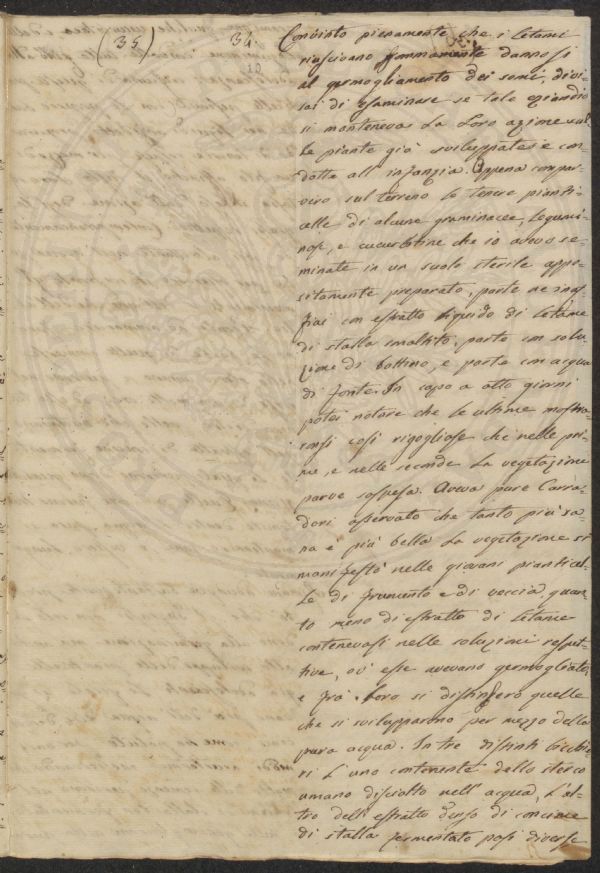 (35) 34.
10
Convinto pienamente che i letami
riuscivano sommamente dannosi
al germogliamento dei semi, divi-
sai di esaminare se tale eziandio
si manteneva la loro azione sul-
le piante già sviluppate e con
dotte all'infanzia. Appena compar-
vero sul terreno le tenere pianti-
celle di alcune graminacee, legumi-
nose, e cucurbitine che io avevo se-
minate in un suolo sterile appo-
sitamente preparato, parte ne inaf-
fiai con estratto liquido di letame
di stalla smaltito, parte con solu-
zione di bottino, e parte con acqua
di fonte. In capo a otto giorni
potei notare che le ultime mostra-
ronsi così rigogliose che nelle pri-
me, e nelle seconde la vegetazione
parve sospesa. Aveva pure Carra-
dori osservato che tanto più sa-
na e più bella la vegetazione si
manifestò nelle giovani pianticel-
le di frumento e di veccia, quan-
to meno di estratto di letame
contenevasi nelle soluzioni respet-
tive, ov'esse avevano germogliato,
e frà loro si distinsero quelle
che si svilupparono per mezzo della
pura acqua. In tre distinti bicchie-
ri l'uno contenente dello sterco
umano disciolto nell'acqua, l'al-
tro dell'estratto denso di concime
di stalla fermentato posi diverse